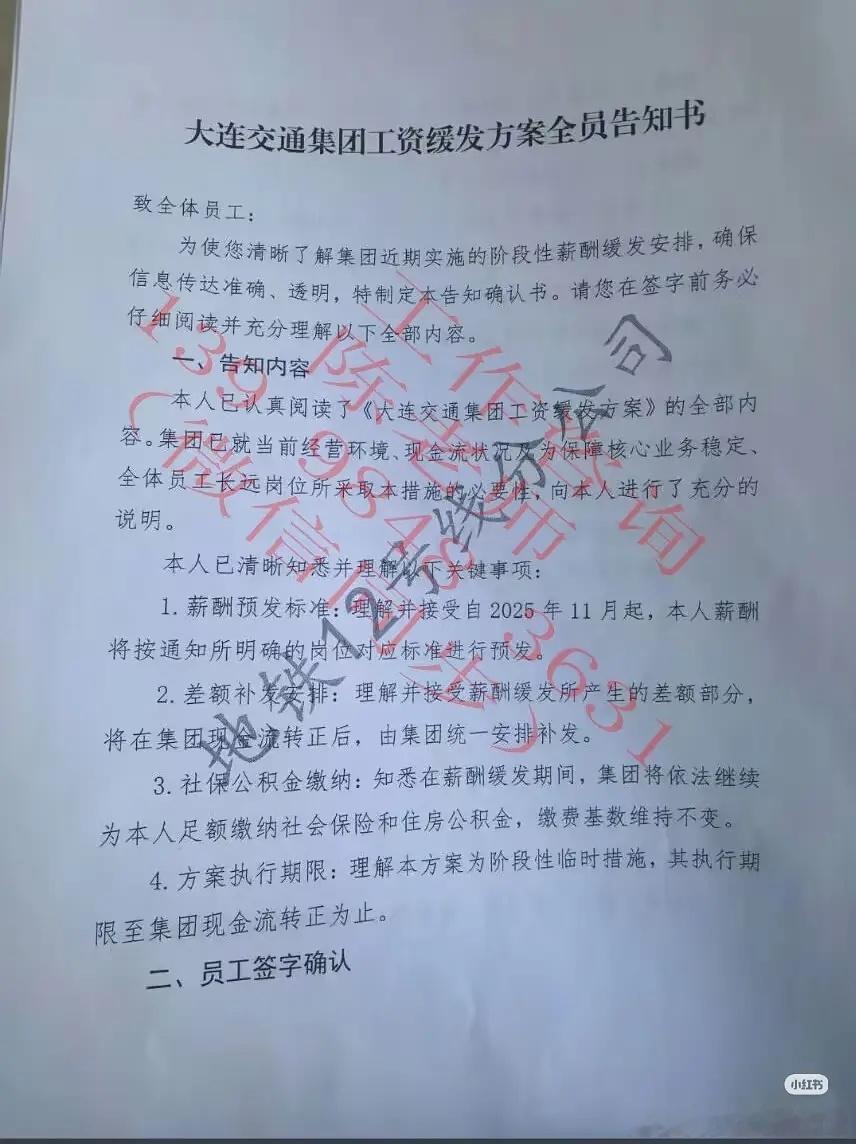 大连交通集团工资缓发方案全员告知书
致全体员工：
为使您清晰了解集团近期实施的阶段性薪酬缓发安排，确保
信息传达准确、透明，特制定本告知确认书。请您在签字前务必
仔细阅读并充分理解以下全部内容。
一、告知内容
本人已认真阅读了《大连交通集团工资缓发方案》的全部内
容。集团已就当前经营环境、现金流状况及为保障核心业务稳定、
全体员工长远岗位所采取本措施的必要性，向本人进行了充分的
说明。
本人已清晰知悉并理解以下关键事项：
1.薪酬预发标准：理解并接受自 2025 年 11 月起，本人薪酬
将按通知所明确的岗位对应标准进行预发。
2.差额补发安排：理解并接受薪酬缓发所产生的差额部分，
将在集团现金流转正后，由集团统一安排补发。
3.社保公积金缴纳：知悉在薪酬缓发期间，集团将依法继续
为本人足额缴纳社会保险和住房公积金，缴费基数维持不变。
4.方案执行期限：理解本方案为阶段性临时措施，其执行期
限至集团现金流转正为止。
二、员工签字确认
地铁12号线分公司
工作咨询
陈老师
（微信同步）
小红书